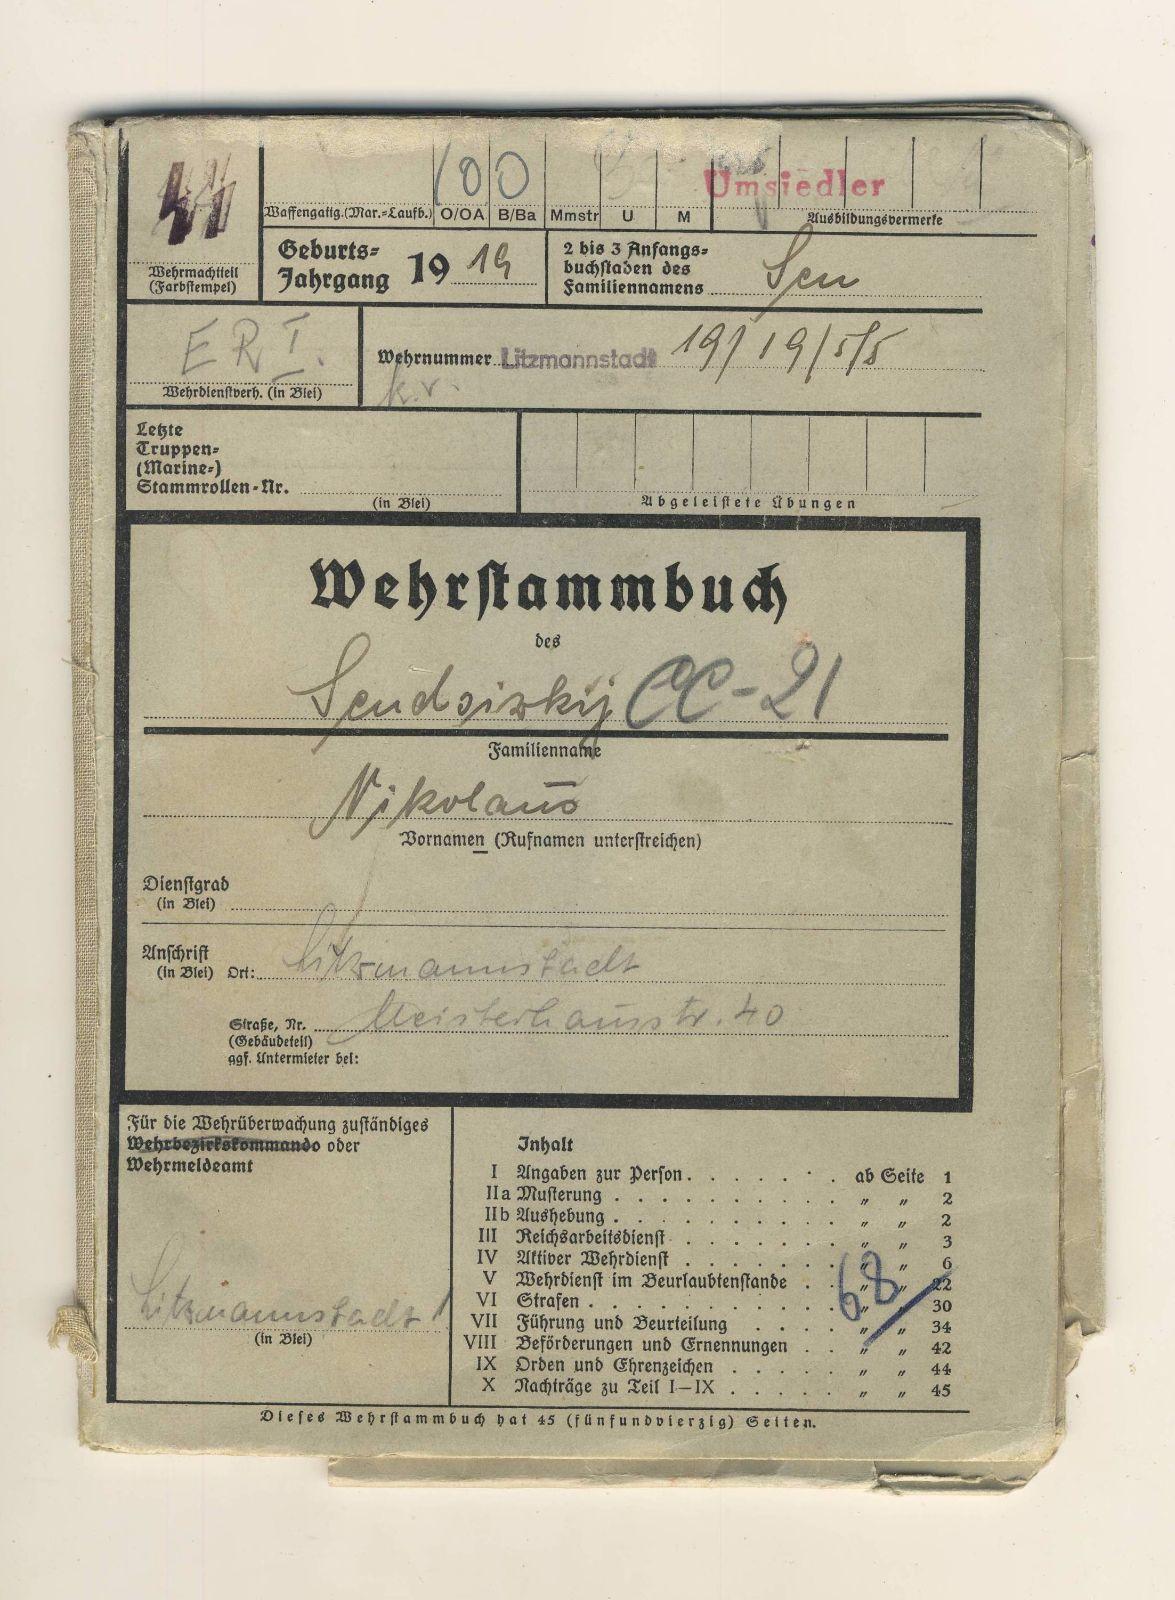 Umsiedler
Waffengattg.(Mar.=Laufb.) O/OA B/Ba Mmstr U M Ausbildungsvermerke
Wehrmachtteil
(Farbstempel)
Geburts=
Jahrgang 19 19
2 bis 3 Anfangs=
buchstaben des
Familiennamens Sen
ER I.
Wehrdienstverh. (in Blei)
Wehrnummer Litzmannstadt 19/19/5/5
k.v.
Letzte
Truppen=
(Marine=)
Stammrollen=Nr.
(in Blei)
Abgeleistete Übungen
Wehrstammbuch
des
Sendsizkij CC-21
Familienname
Nikolaus
Vornamen (Rufnamen unterstreichen)
Dienstgrad
(in Blei)
Anschrift
(in Blei) Ort: Litzmannstadt
Straße, Nr. Meisterhausstr. 40
(Gebäudeteil)
ggf. Untermieter bei:
Für die Wehrüberwachung zuständiges
Wehrbezirkskommando oder
Wehrmeldeamt
Litzmannstadt 1
(in Blei)
Inhalt
I Angaben zur Person . . . . . . ab Seite 1
IIa Musterung . . . . . . . . . . „ „ 2
IIb Aushebung . . . . . . . . . . „ „ 2
III Reichsarbeitsdienst . . . . . . . „ „ 3
IV Aktiver Wehrdienst . . . . . . . „ „ 6
V Wehrdienst im Beurlaubtenstande . „ „ 22
VI Strafen . . . . . . . . . . . „ „ 30
VII Führung und Beurteilung . . . . „ „ 34
VIII Beförderungen und Ernennungen . . „ „ 42
IX Orden und Ehrenzeichen . . . . . „ „ 44
X Nachträge zu Teil I—IX . . . . . „ „ 45
68
Dieses Wehrstammbuch hat 45 (fünfundvierzig) Seiten.